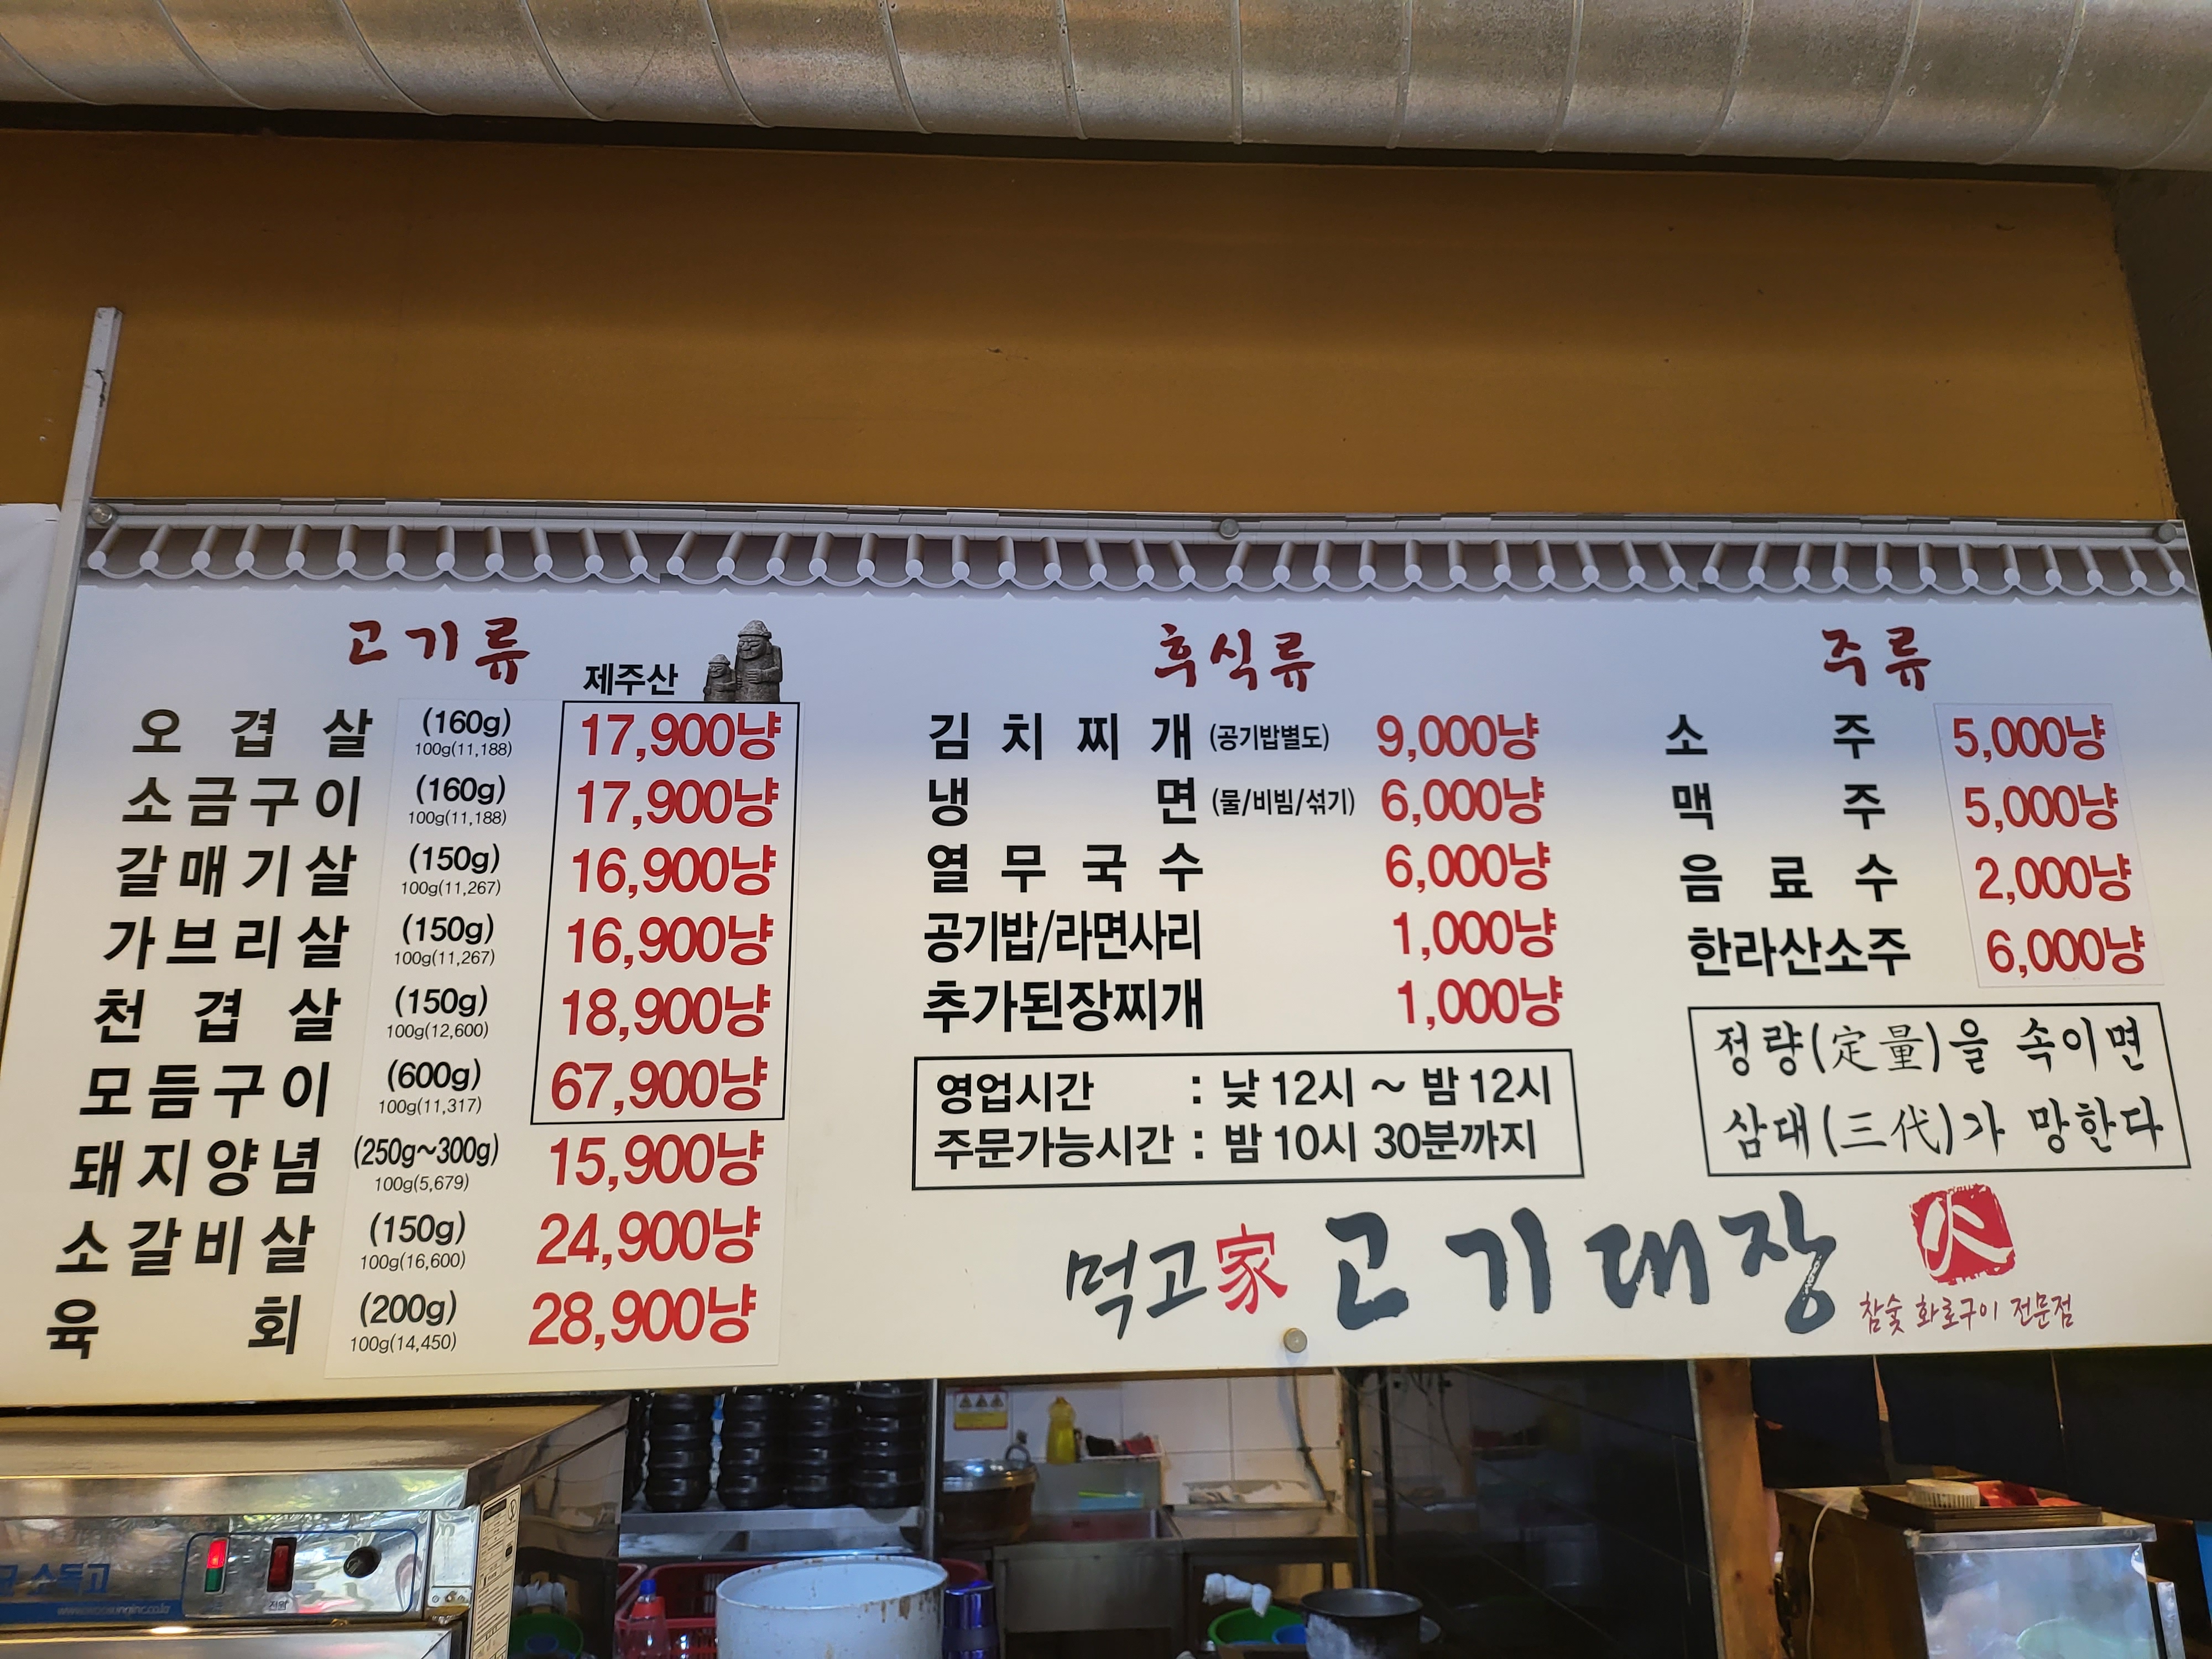 고기류
제주산
오겹살 (160g) 100g(11,188) 17,900냥
소금구이 (160g) 100g(11,188) 17,900냥
갈매기살 (150g) 100g(11,267) 16,900냥
가브리살 (150g) 100g(11,267) 16,900냥
천겹살 (150g) 100g(12,600) 18,900냥
모듬구이 (600g) 100g(11,317) 67,900냥
돼지양념 (250g~300g) 100g(5,679) 15,900냥
소갈비살 (150g) 100g(16,600) 24,900냥
육회 (200g) 100g(14,450) 28,900냥
후식류
김치찌개 (공기밥별도) 9,000냥
냉면 (물/비빔/섞기) 6,000냥
열무국수 6,000냥
공기밥/라면사리 1,000냥
추가된장찌개 1,000냥
영업시간 : 낮 12시 ~ 밤 12시
주문가능시간 : 밤 10시 30분까지
주류
소주 5,000냥
맥주 5,000냥
음료수 2,000냥
한라산소주 6,000냥
정량(定量)을 속이면
삼대(三代)가 망한다
먹고家 고기대장 火
참숯 화로구이 전문점
소독고